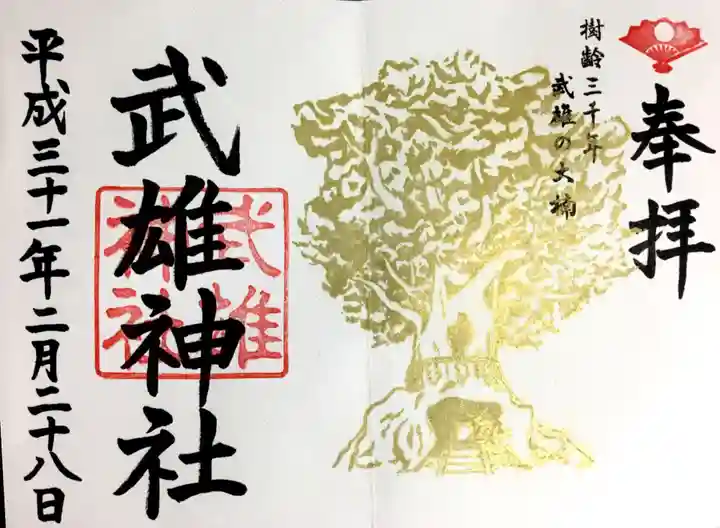 奉拝
樹齢三千年
武雄の大楠
武雄神社
武雄
神社
平成三十一年二月二十八日